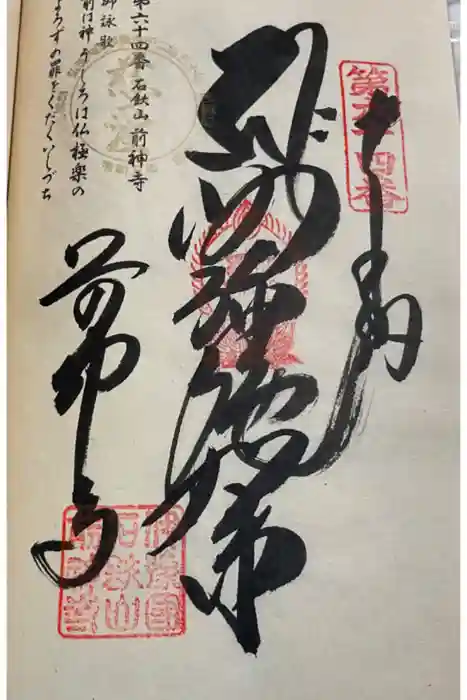 第六十四番
奉納
阿弥陀如来
前神寺
第六十四番 石鈇山 前神寺
御詠歌
前は神 うしろは仏 極楽の
よろずの罪をくだくいしづち
伊豫国
石鈇山
前神寺